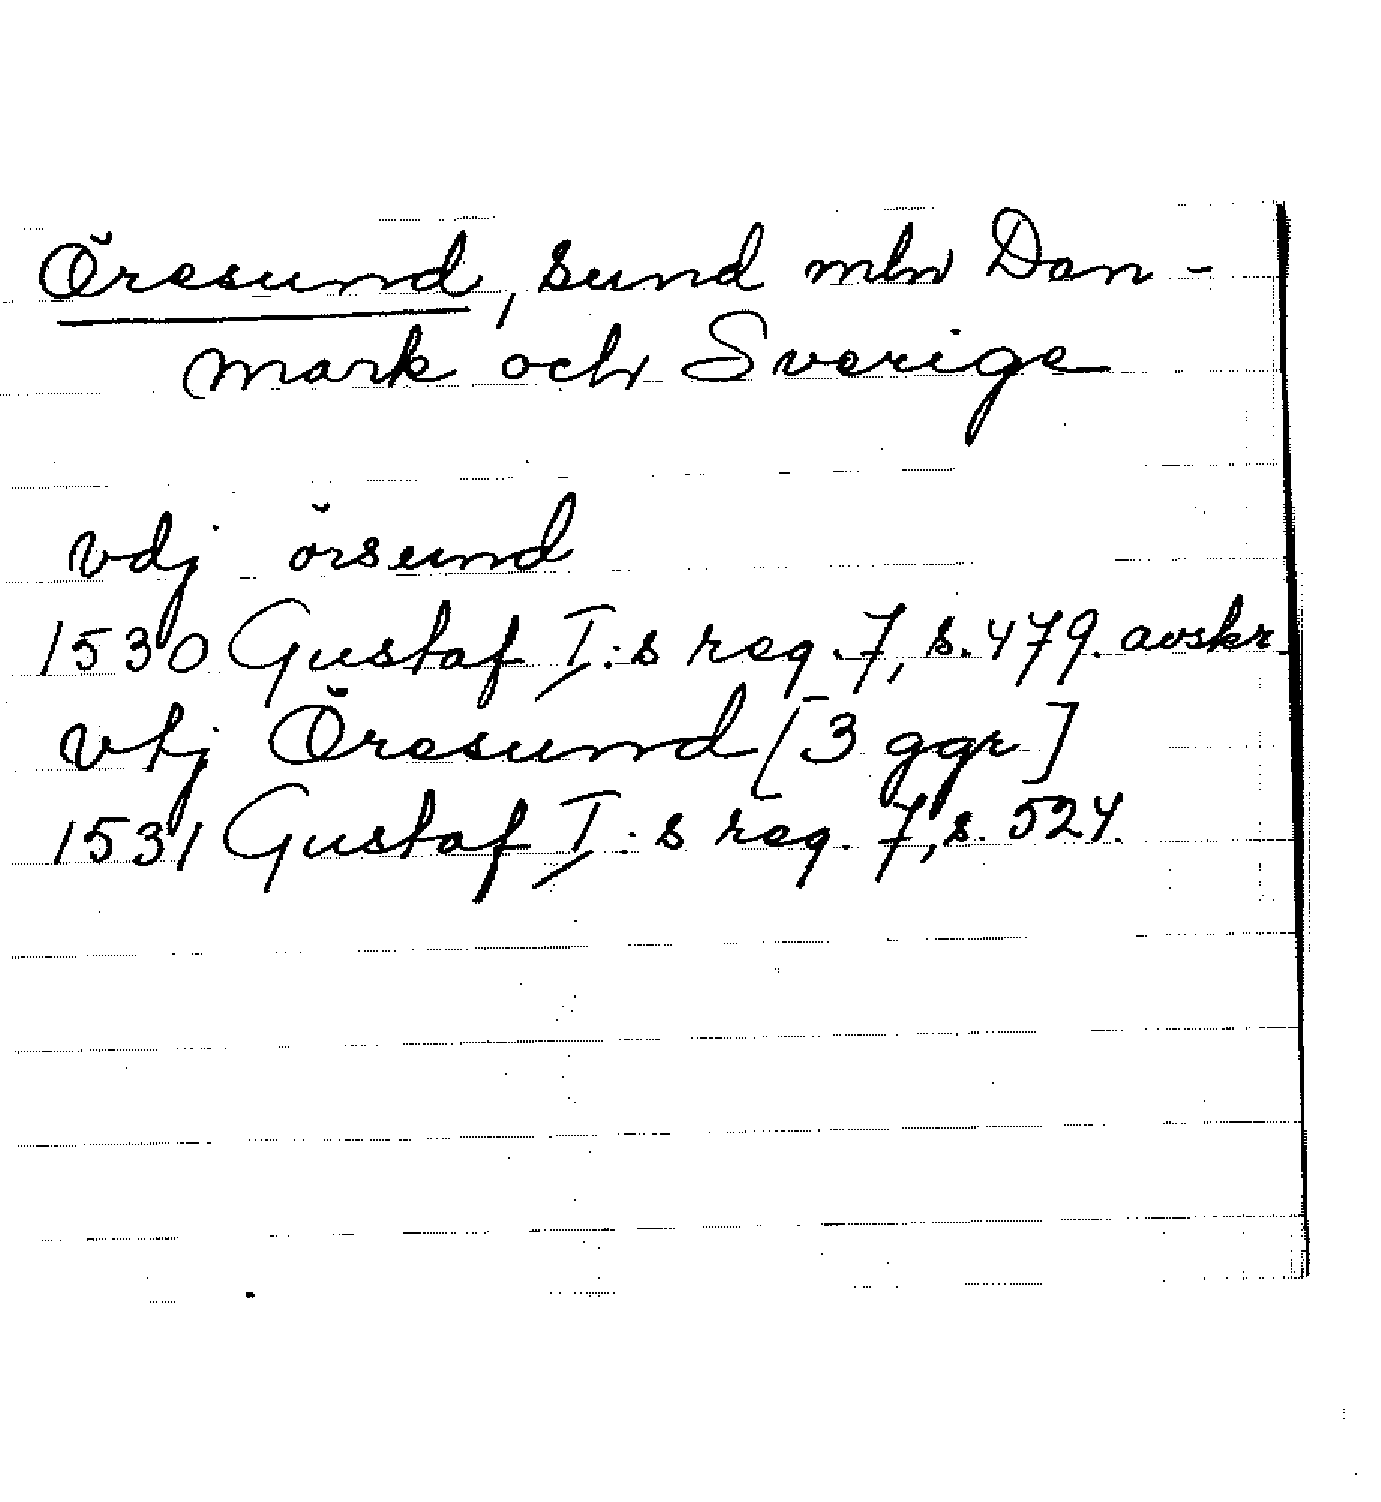 Öresund, sund mln Dan-
mark och Sverige
vdj örsund
1530 Gustaf I:s reg. 7, s. 479. avskr.
vtj Öresund [3 ggr]
1531 Gustaf I:s reg. 7, s. 524.